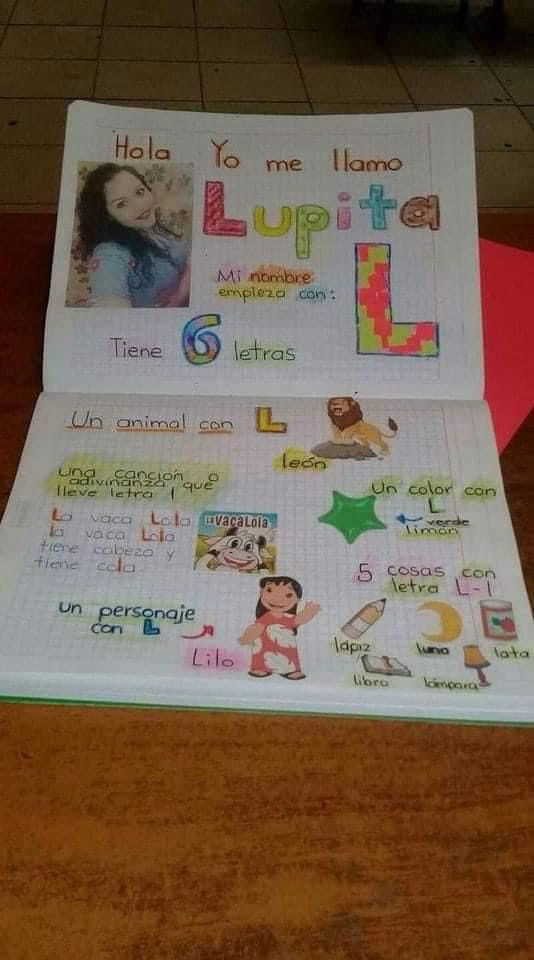 Hola Yo me llamo
Lupita
Mi nombre
empieza con:
L
Tiene 6 letras
Un animal con L
león
Una canción o
adivinanza que
lleve letra l
La vaca Lola
la vaca Lola
tiene cabeza y
tiene cola.
LA VACA Lola
Un color con
L
verde
limón
5 cosas con
letra L-l
lápiz
luna
lata
libro
lámpara
un personaje
con L
Lilo